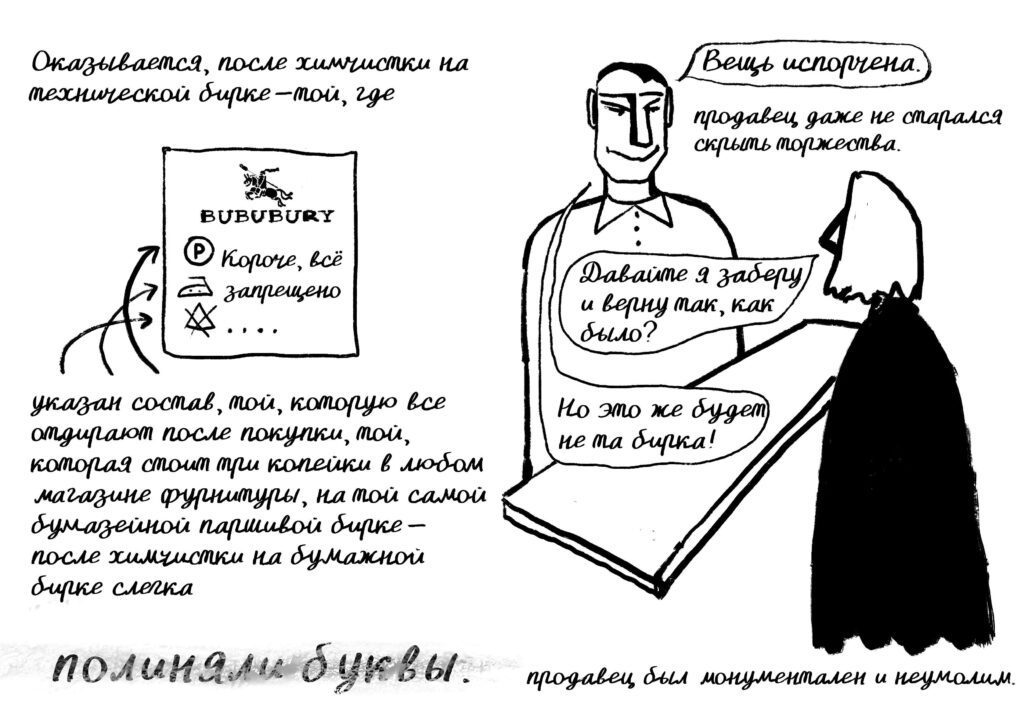 Оказывается, после химчистки на
технической бирке—той, где
BUBUBURY
P Короче, всё
запрещено
....
указан состав, той, которую все
отдирают после покупки, той,
которая стоит три копейки в любом
магазине фурнитуры, на той самой
бумазейной паршивой бирке—
после химчистки на бумажной
бирке слегка
полиняли буквы.
Вещь испорчена.
продавец даже не старался
скрыть торжества.
Давайте я заберу
и верну так, как
было?
Но это же будет
не та бирка!
продавец был монументален и неумолим.